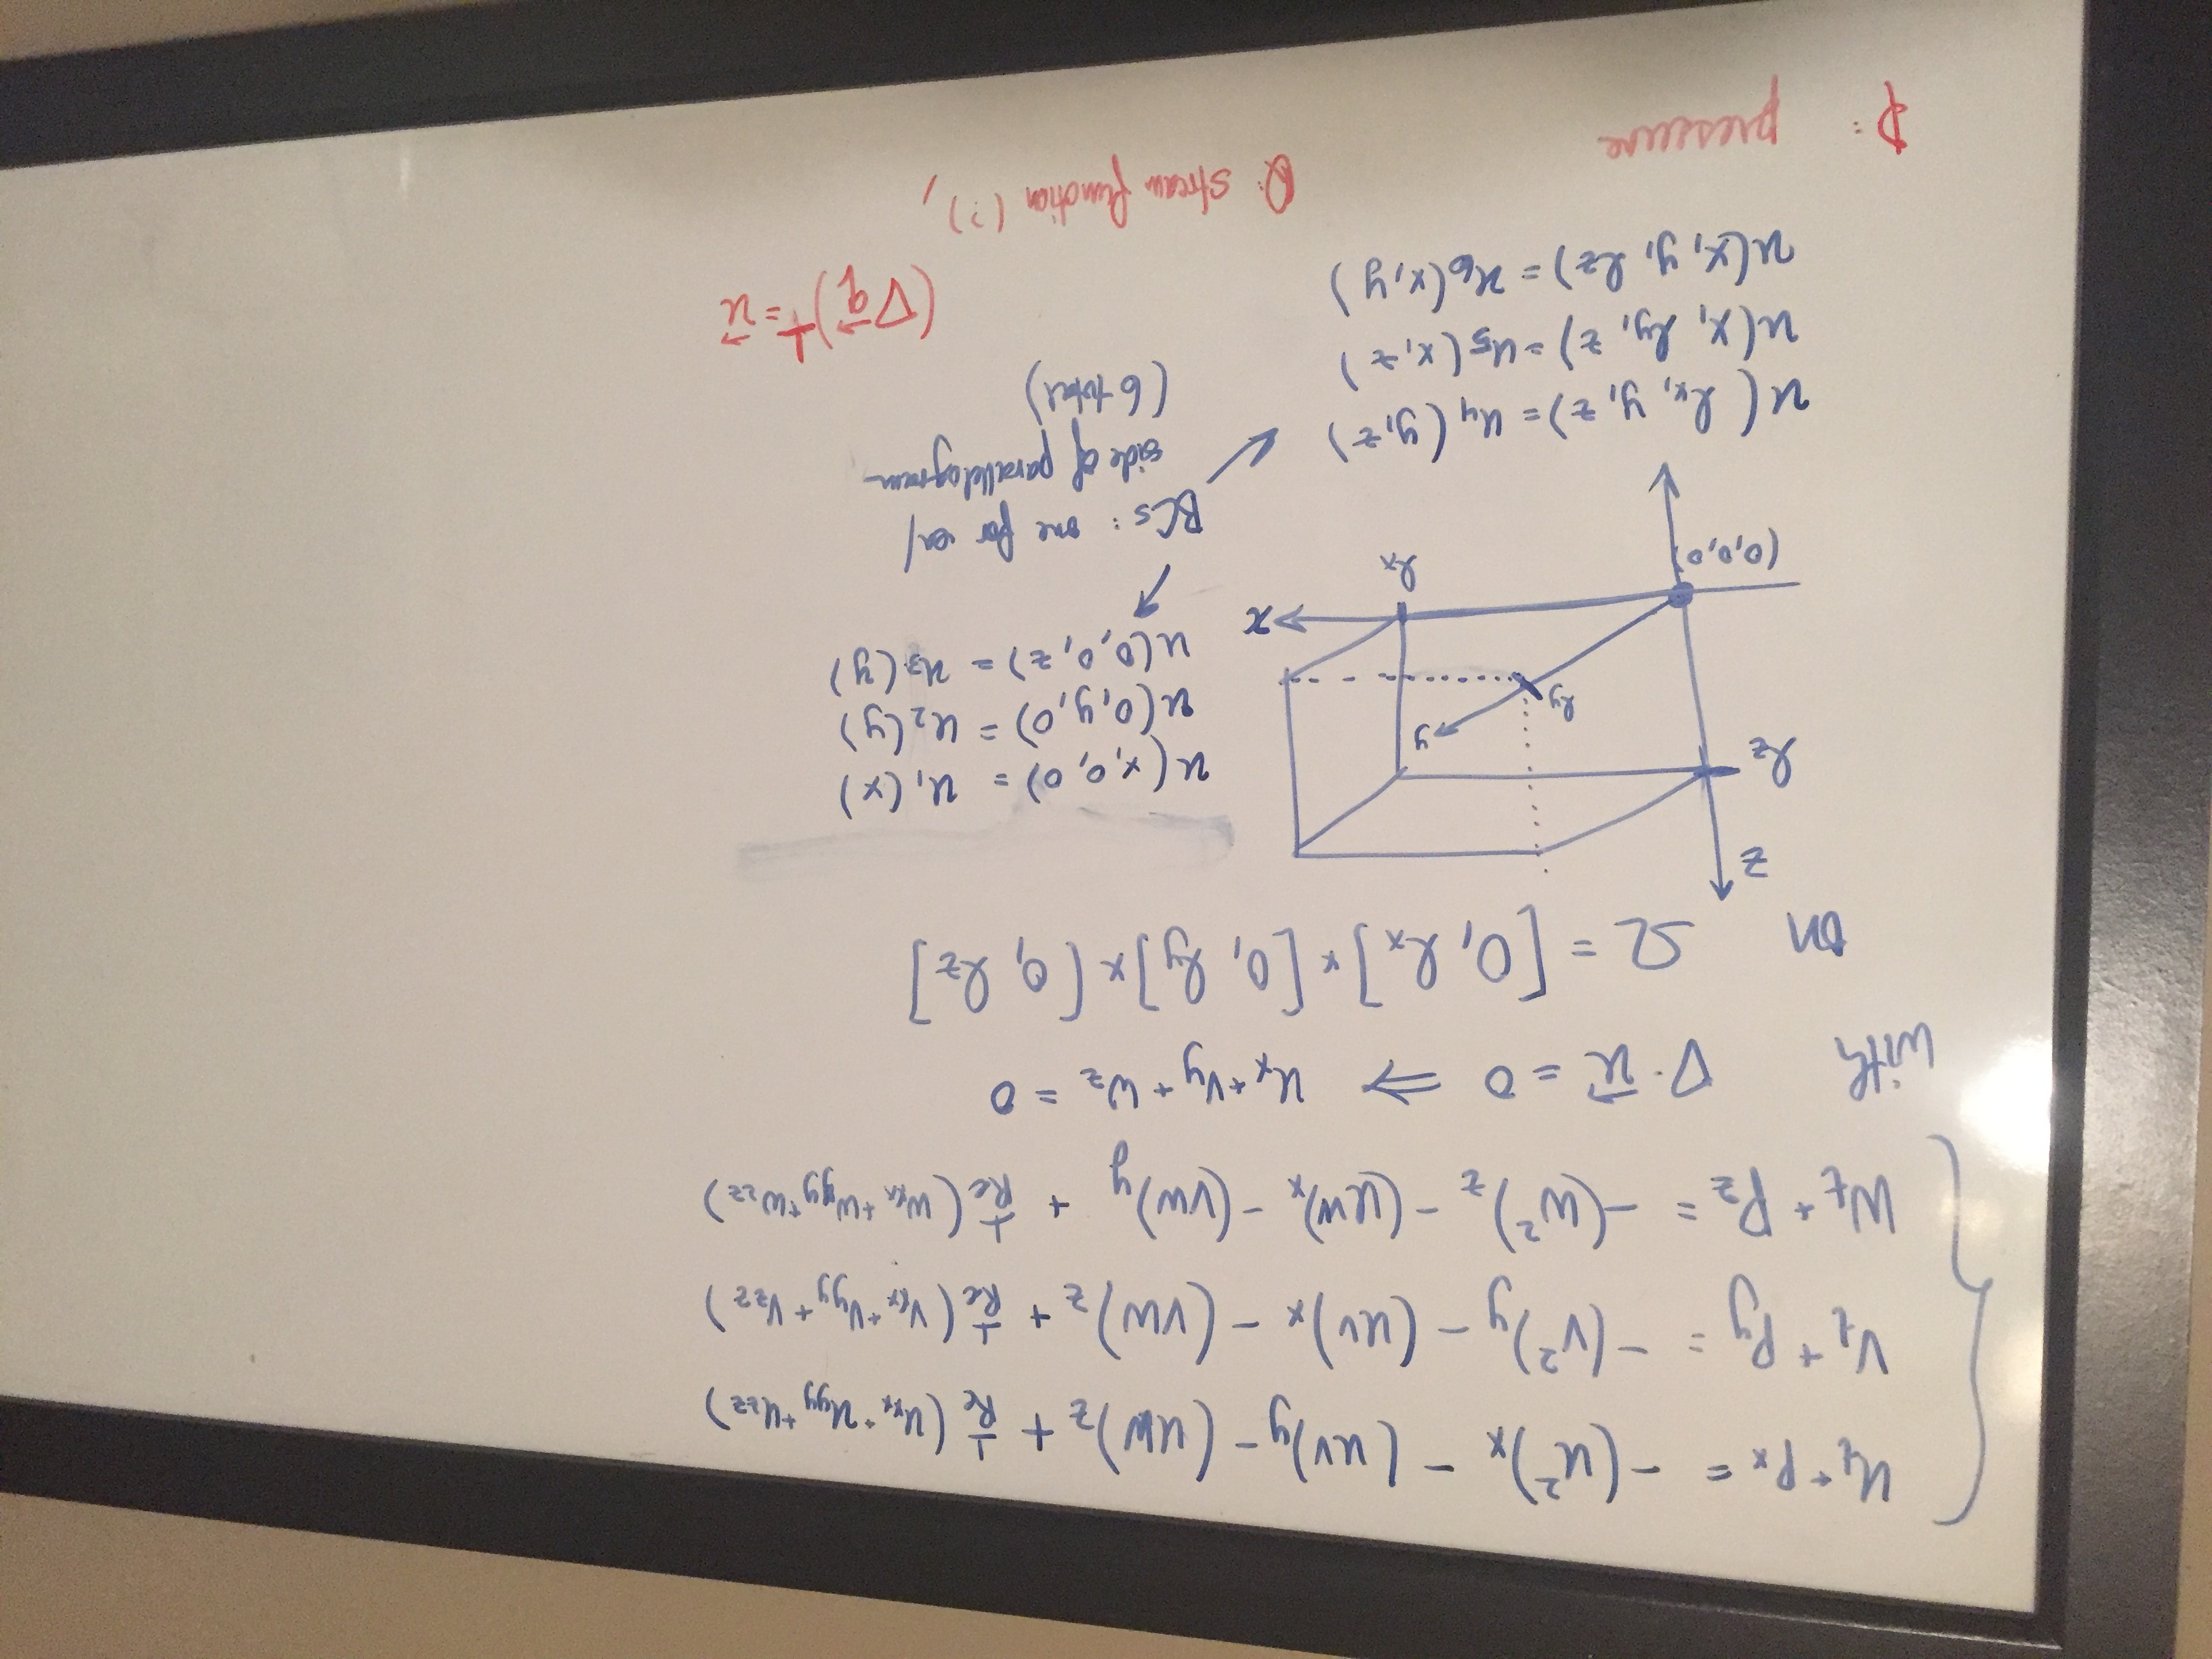 u_t + p_x = -(u²)_x - (uv)_y - (uw)_z + 1/Re (u_xx + u_yy + u_zz)
v_t + p_y = -(v²)_y - (uv)_x - (vw)_z + 1/Re (v_xx + v_yy + v_zz)
w_t + p_z = -(w²)_z - (uw)_x - (vw)_y + 1/Re (w_xx + w_yy + w_zz)
with ∇·u⃗ = 0 ⇒ u_x + v_y + w_z = 0
on Ω = [0, l_x] × [0, l_y] × [0, l_z]
z
l_z
y
l_y
x
l_x
(0,0,0)
u(x,0,0) = u₁(x)
u(0,y,0) = u₂(y)
u(0,0,z) = u₃(y)
BCs: one for ea/
side of parallelogram
(6 total)
u(l_x, y, z) = u₄(y,z)
u(x, l_y, z) = u₅(x,z)
u(x, y, l_z) = u₆(x,y)
(∇q⃗)^⊥ = u⃗
P: pressure
Q: stream function (?),